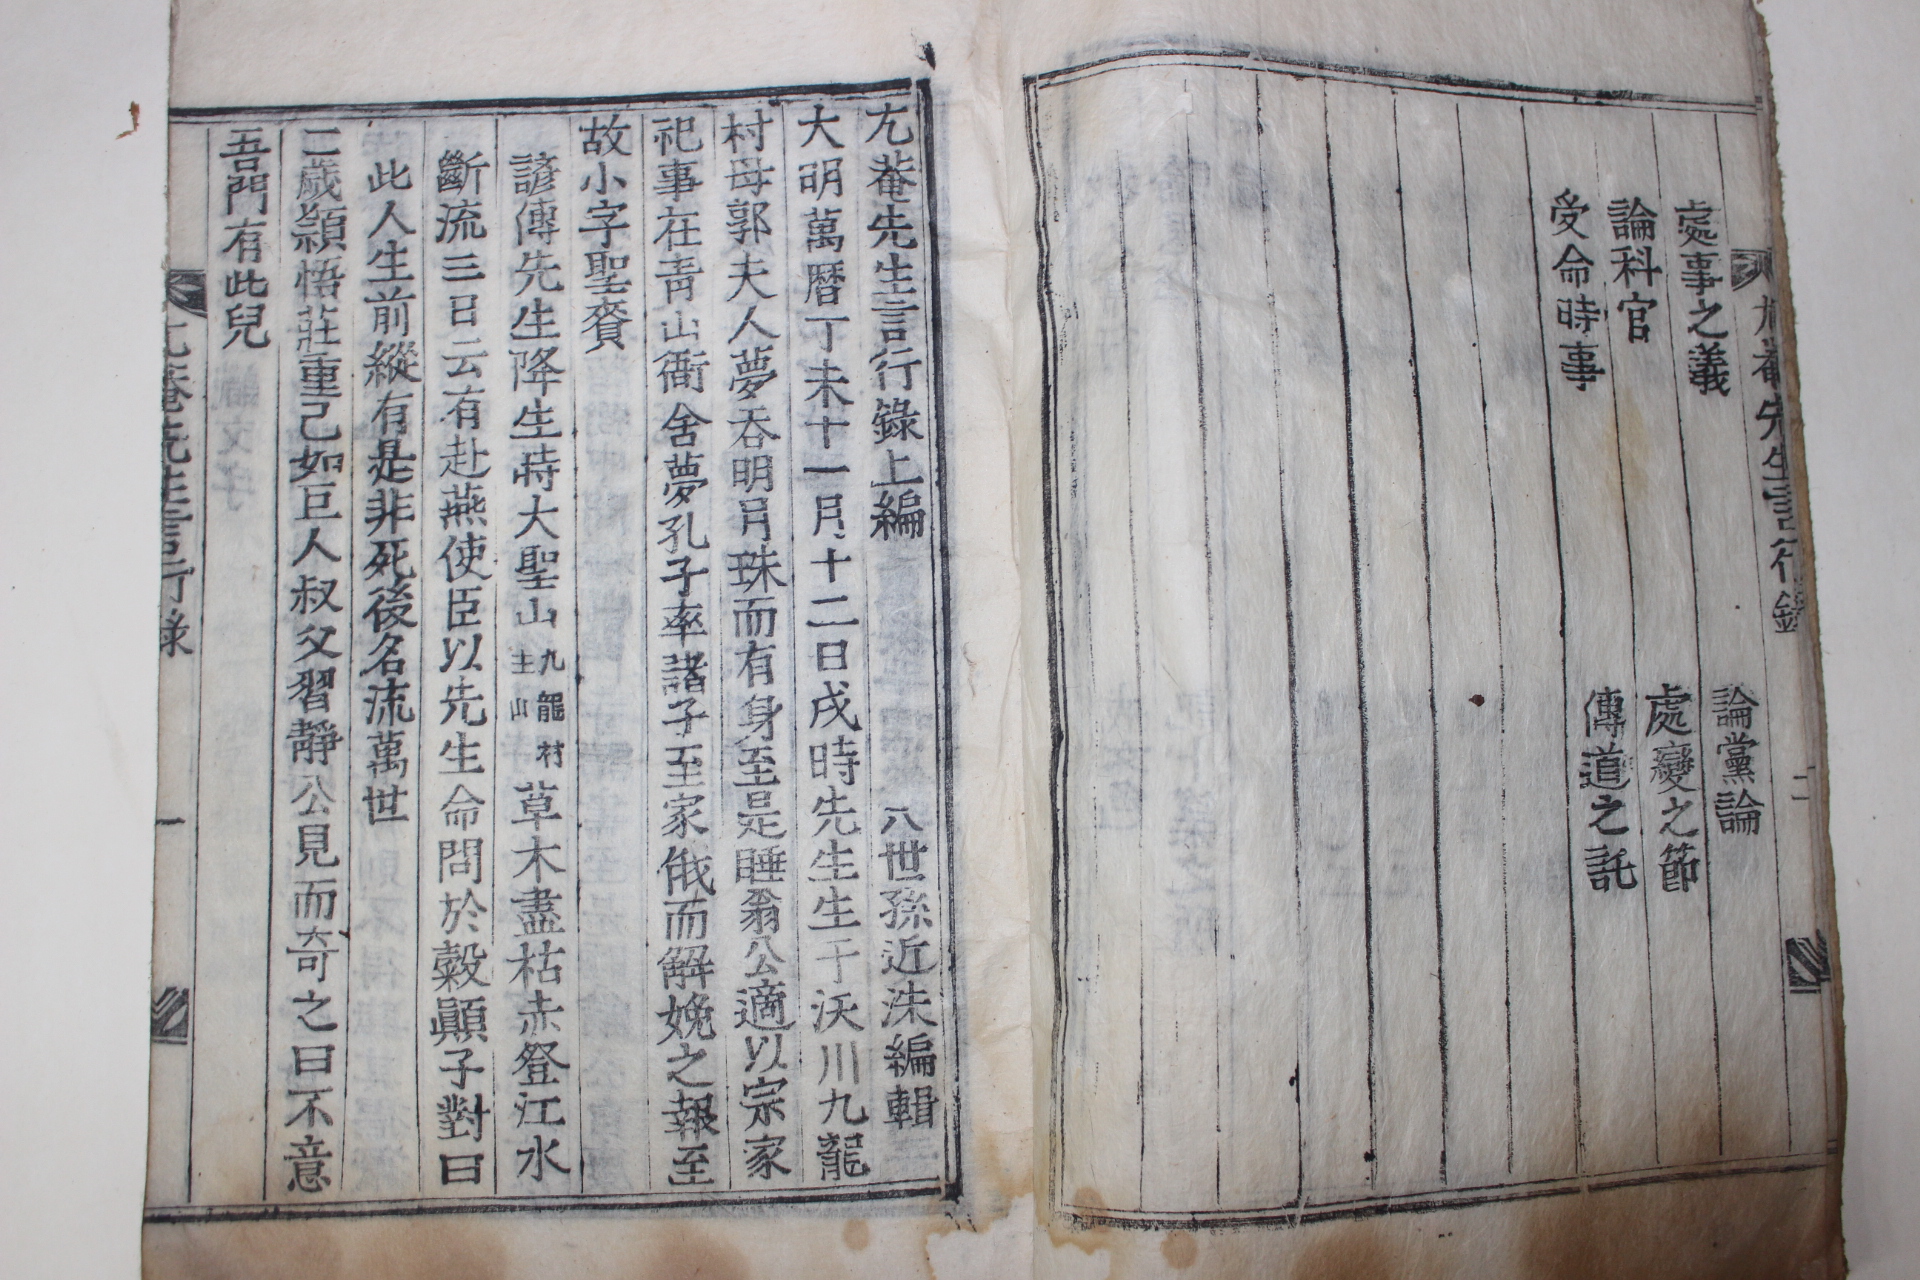 尤菴先生言行錄 二
處事之義 論黨論
論科官 處變之節
受命時事 傳道之託
尤菴先生言行錄上編 八世孫近洙編輯
大明萬曆丁未十一月十二日戌時先生生于沃川九龍
村母郭夫人夢呑明月珠而有身至是睡翁公適以宗家
祀事在靑山衙舍夢孔子率諸子至家俄而解娩之報至
故小字聖賚
諺傳先生降生時大聖山九龍村主山草木盡枯赤登江水
斷流三日云有赴燕使臣以先生命問於穀顚子對曰
此人生前縱有是非死後名流萬世
二歲穎悟莊重已如巨人叔父習靜公見而奇之曰不意
吾門有此兒
尤菴先生言行錄 一